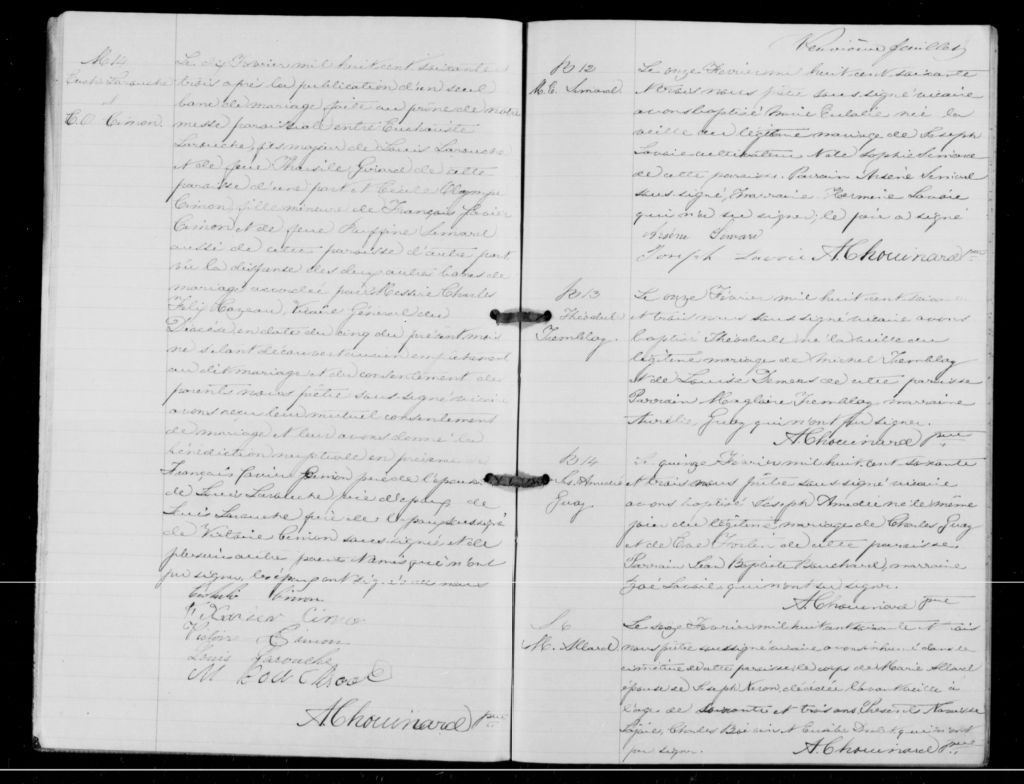 M 14
Euch. Larouche
et
C. O. Cimon.
Le dix Fevrier mil huit cent soixante et
trois après la publication d'un seul
banc de mariage faite au prône de notre
messe paroissiale entre Euchariste
Larouche, fils majeur de Louis Larouche
et de feue Tharsile Girard de cette
paroisse d'une part et Cécile Olympe
Cimon, fille mineure de François Xavier
Cimon et de feue Ruffine Simard
aussi de cette paroisse d'autre part
vu la dispense des deux autres bancs de
mariage accordée par Messire Charles
Félix Cazeau, Vicaire Général du
Diocèse en date du cinq du présent mois
ne s'étant découvert aucun empêchement
au dit mariage et du consentement de
parents nous prêtre sous signé vicaire
avons reçu leur mutuel consentement
de mariage et leur avons donné la
bénédiction nuptiale en présence de
François Xavier Cimon père de l'épouse
de Louis Larouche père de l'époux soussigné
de Victorie Cimon sous signés et de
plusieurs autre parents et amis qui n'ont
pu signer, les époux ont signé avec nous
Cimon
Xavier Cimo
Victoire Cimon
Louis Larouche
A Chouinard ptre
Neuvième feuillet
B 12
M. E. Simard
Le onze Fevrier mil huit cent soixante
et trois nous prêtre sous signé vicaire
avons baptisé Marie Eulalie née la
veille du légitime mariage de Joseph
Lavoie cultivateur et de Sophie Simard
de cette paroisse. Parrain Arsène Simard
sous signé, marraine Hermine Lavoie
qui n'a su signer; le père a signé
Arsène Simard
Joseph Lavoie A Chouinard ptre
B 13
Théodule
Tremblay.
Le onze Fevrier mil huit cent soixante
et trois nous sous signé vicaire avons
baptisé Théodule né la veille du
légitime mariage de Michel Tremblay
et de Louise Demers de cette paroisse
Parrain Magloire Tremblay marraine
Aurélie Guay qui n'ont su signer.
A Chouinard ptre
B 14
Js. Amédée
Guay
Le quinze Fevrier mil huit cent soixante
et trois nous prêtre sous signé vicaire
avons baptisé Joseph Amédée né le même
jour du légitime mariage de Charles Guay
et de Zoé Fortin de cette paroisse.
Parrain Jean Baptiste Bouchard, marraine
Zoé Lavoie qui n'ont su signer.
A. Chouinard ptre
S 6
M. Allard
Le seize Fevrier mil huit cent soixante et trois
nous prêtre sous signé vicaire avons inhumé dans le
cimetière de cette paroisse le corps de Marie Allard
épouse de Joseph Néron, décédée l'avant veille à
l'age de soixante et trois ans Présents Narcisse
Lajoie, Charles Boivin et Eusèbe qui n'ont
pu signer. A. Chouinard ptre